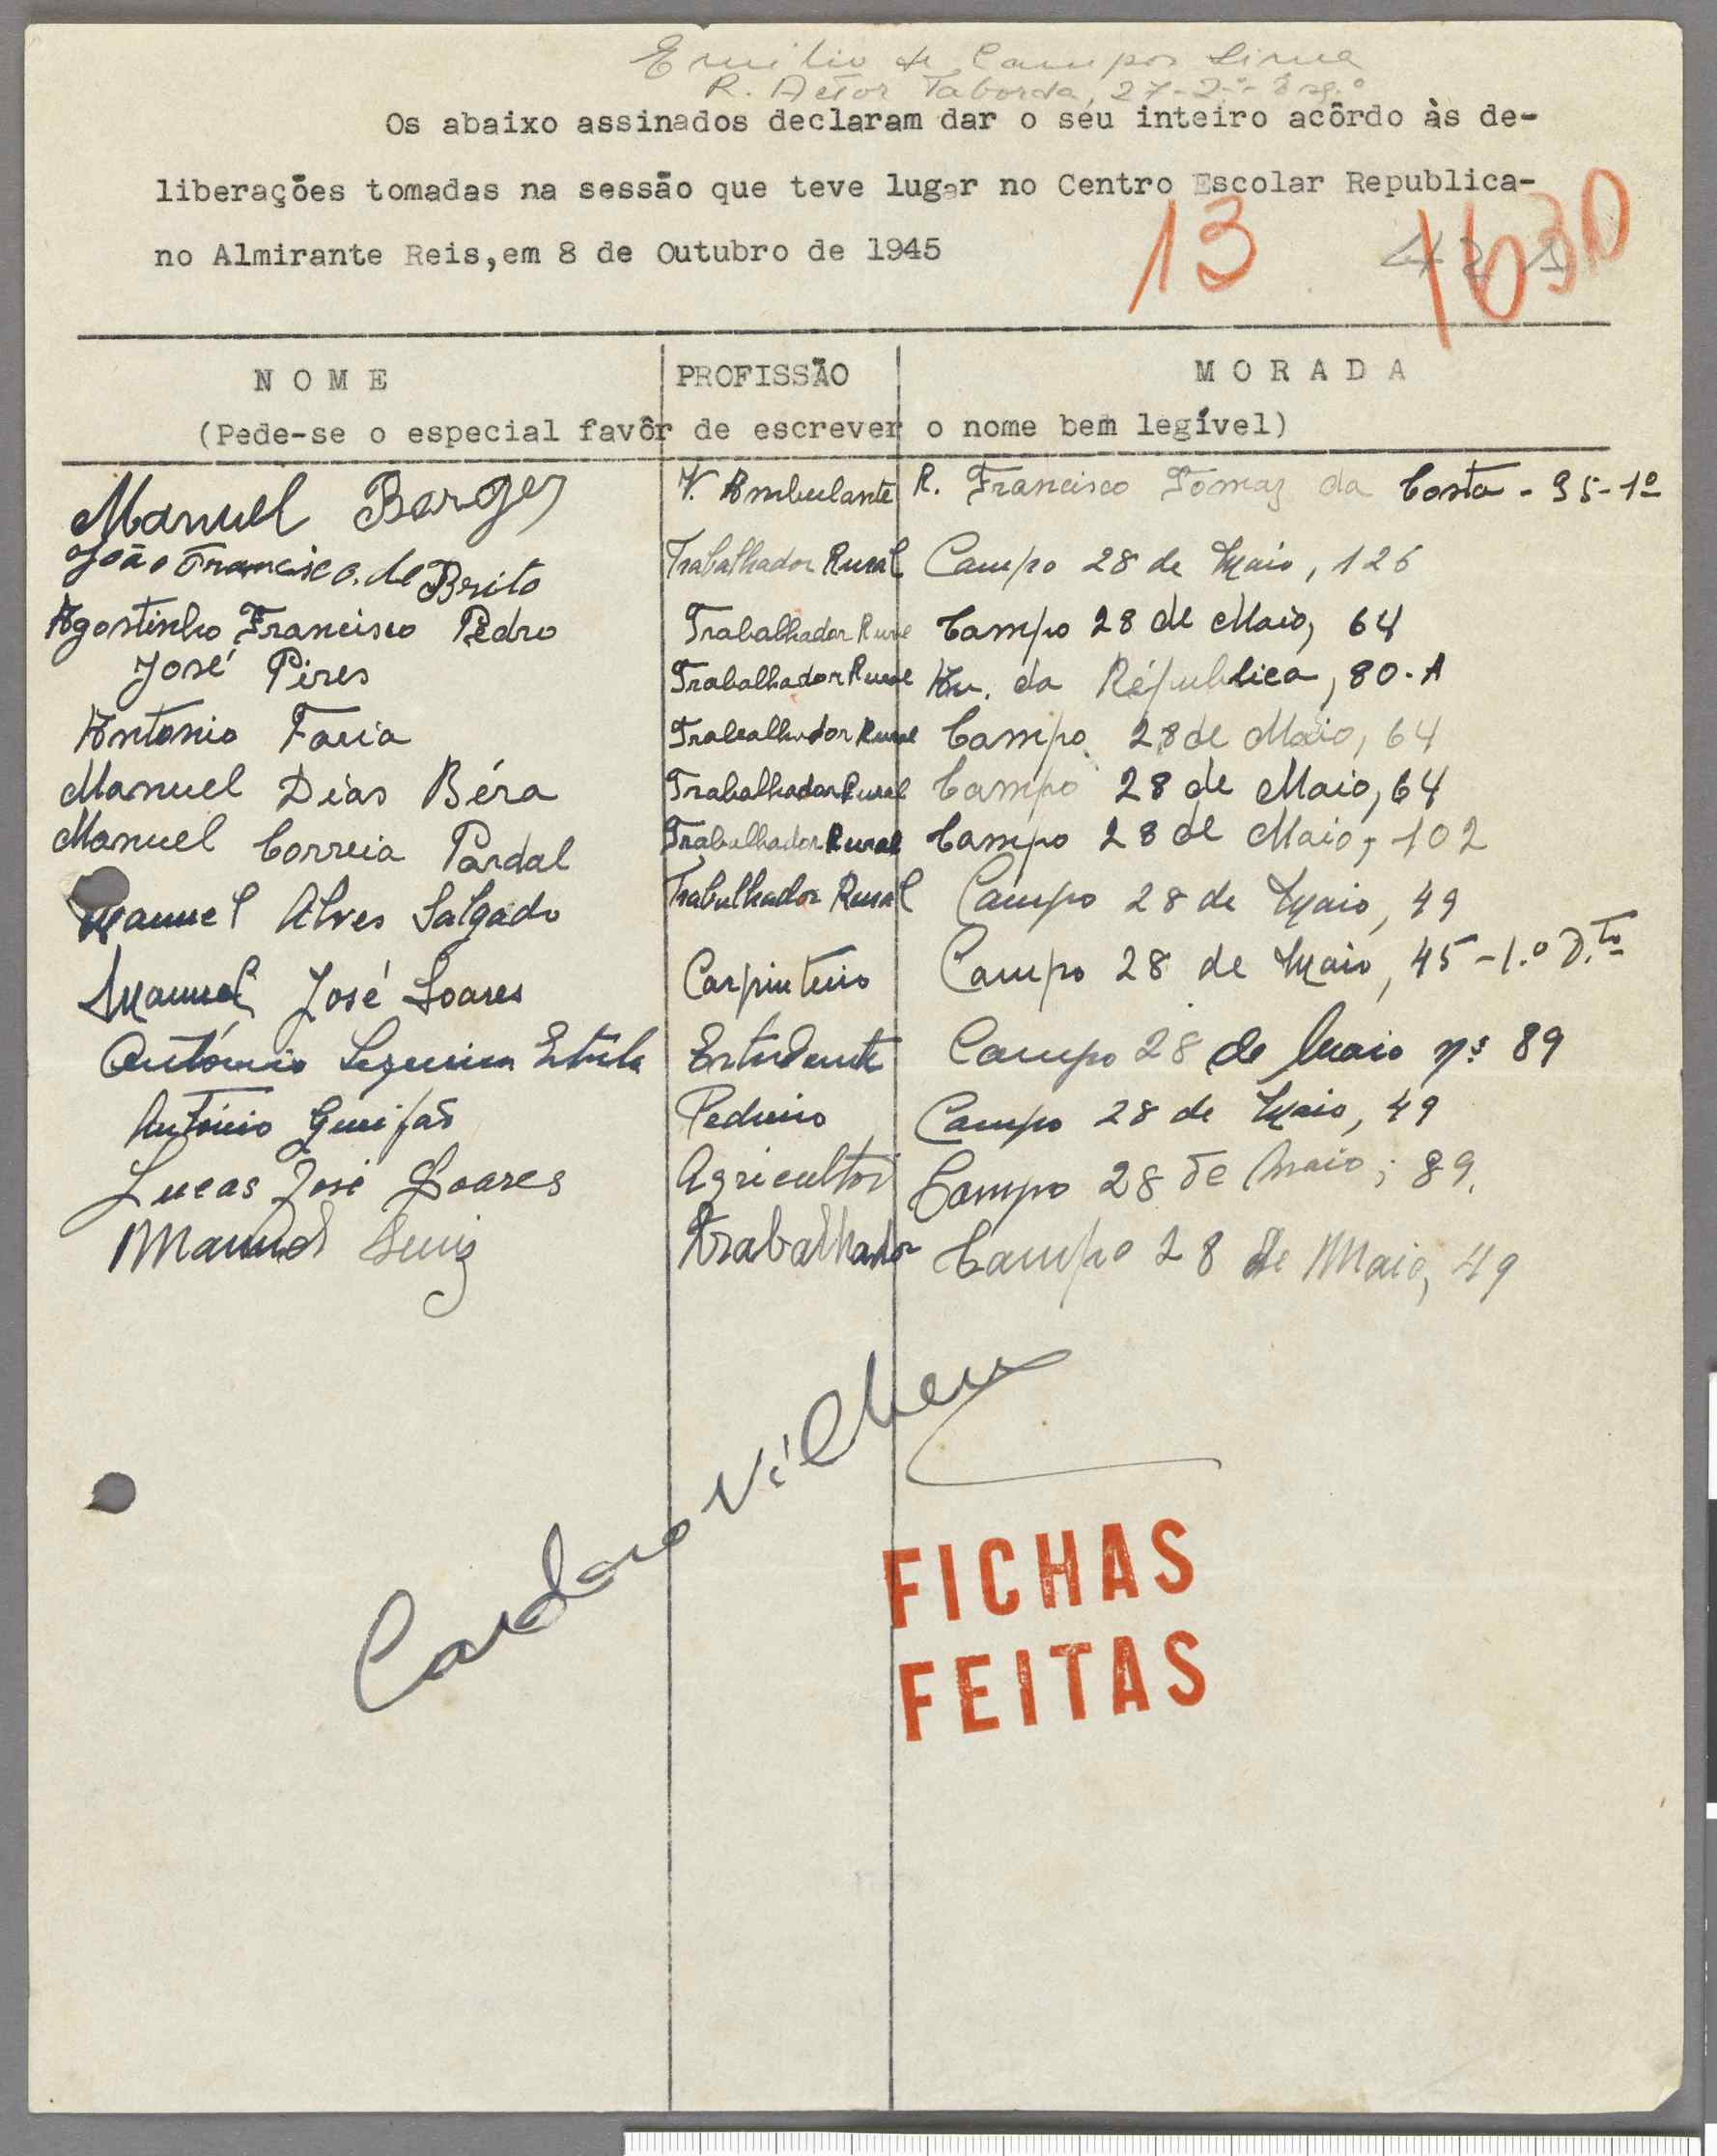 Emilio de Campos Lima
R. Actor Taborda, 27-2º- Esq.º
Os abaixo assinados declaram dar o seu inteiro acôrdo às de-
liberações tomadas na sessão que teve lugar no Centro Escolar Republica-
no Almirante Reis,em 8 de Outubro de 1945
13
1630
N O M E PROFISSÃO M O R A D A
(Pede-se o especial favôr de escrever o nome bem legível)
Manuel Borges V. Ambulante R. Francisco Tomaz da Costa - 95-1º
João Francisco de Brito Trabalhador Rural Campo 28 de Maio, 126
Agostinho Francisco Pedro Trabalhador Rural Campo 28 de Maio, 64
José Pires Trabalhador Rural Av. da Républica, 80-A
Antonio Faria Trabalhador Rural Campo 28 de Maio, 64
Manuel Dias Béra Trabalhador Rural Campo 28 de Maio, 64
Manuel Correia Pardal Trabalhador Rural Campo 28 de Maio, 102
Manuel Alves Salgado Trabalhador Rural Campo 28 de Maio, 49
Manuel José Soares Carpinteiro Campo 28 de Maio, 45-1.º D.to
António Estudante Campo 28 de Maio nº 89
António Pedreiro Campo 28 de Maio, 49
Lucas José Soares Agricultor Campo 28 de Maio, 89.
Manuel Luiz Trabalhador Campo 28 de Maio, 49
Cardoso Vilhena
FICHAS
FEITAS